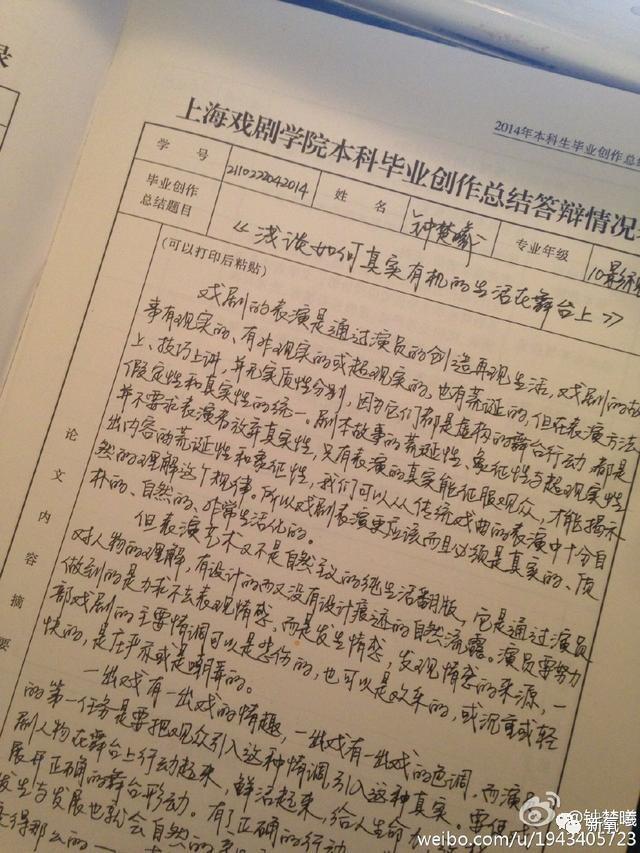 录
2014年本科生毕业创作总结
上海戏剧学院本科毕业创作总结答辩情况
学 号
2110222042014
姓 名
钟楚曦
专业年级
10影视
毕业创作
总结题目
《浅谈如何真实有机的生活在舞台上》
(可以打印后粘贴)
论文内容摘要
戏剧的表演是通过演员的创造再现生活,戏剧的故
事有现实的、有非现实的或超现实的,也有荒诞的,但在表演方法
上、技巧上讲,并无实质性分别,因为它们都是虚构的舞台行动,都是
假定性和真实性的统一。剧本故事的荒诞性、象征性与超现实性
并不要求表演者放弃真实性,只有表演的真实能征服观众,才能揭示
出内容的荒诞性和象征性,我们可以从从传统戏曲的表演中十分自
然的理解这个规律。所以戏剧表演更应该而且必须是真实的、质
朴的、自然的、非常生活化的。
但表演艺术又不是自然主义的纯生活翻版,它是通过演员
对人物的理解,有设计的而又没有设计痕迹的自然流露。演员要努力
做到的是力求不去表现情感,而是发生情感,发现情感的来源,一
部戏剧的主要情调可以是悲伤的,也可以是欢乐的,或沉重或轻
快的,是庄严亦或是嘲弄的。
一出戏有一出戏的情趣,一出戏有一出戏的色调,而演员
的第一任务是要把观众引入这种情调,引入这种真实。要使
剧人物在舞台上行动起来,鲜活起来,给人生命力
展开正确的舞台形动。有了正确的行动
发生与发展也就会自然的
得那么的一
钟楚曦
新氧
weibo.com/u/1943405723